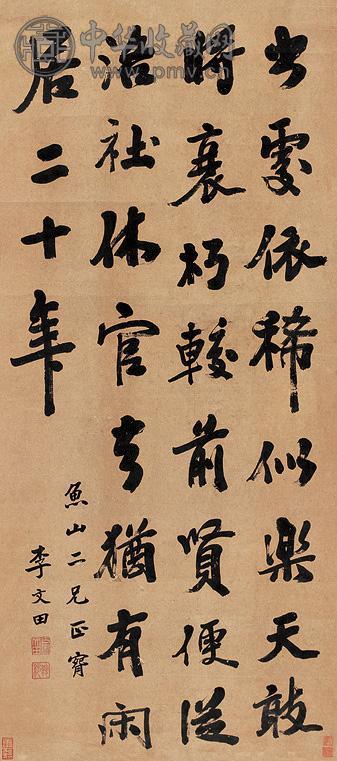 中华收藏网
www.pmv.cn
出處依稀似樂天敢
將衰朽較前賢便從
洛社休官去猶有閑
居二十年
魚山二兄正
李文田